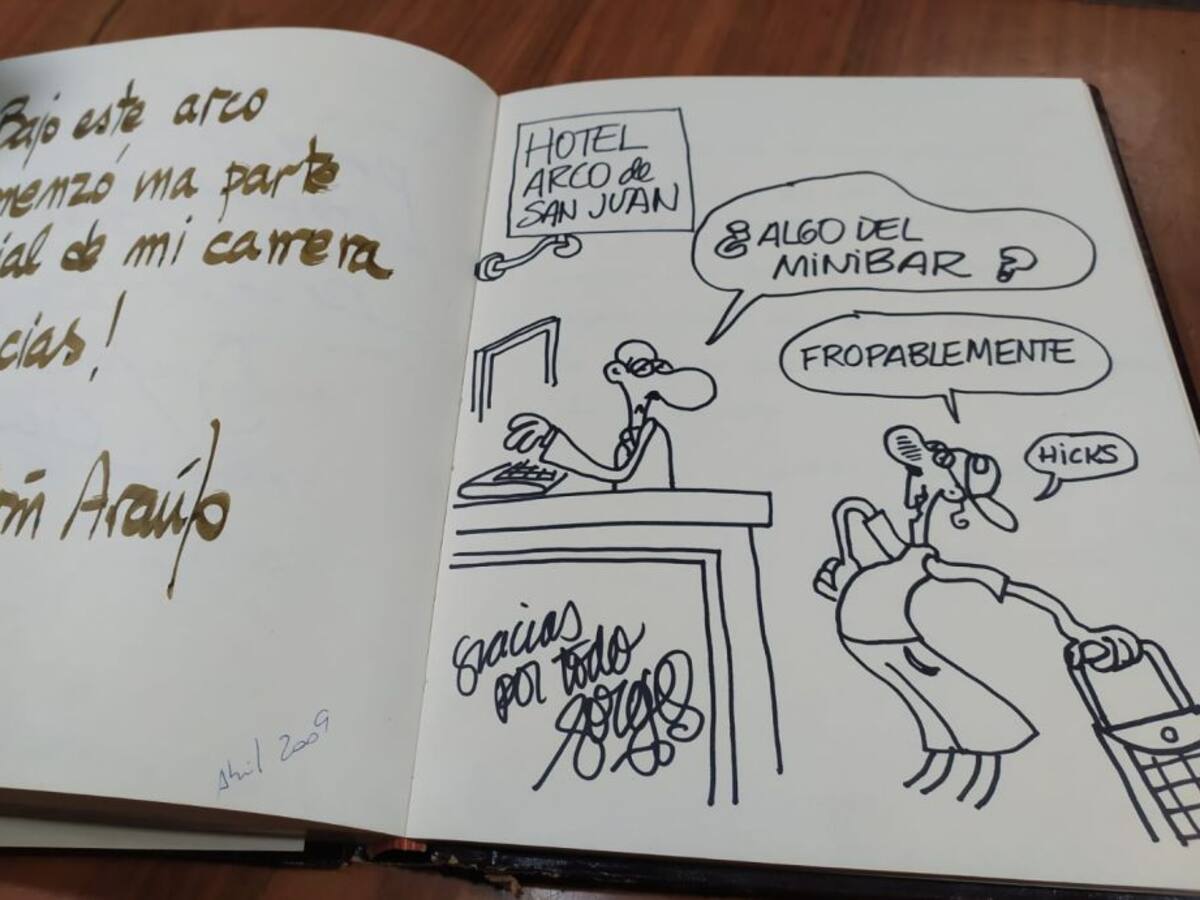 Bajo este arco
menzó una parte
ial de mi carrera
cias!
Araújo
Abril 2009
HOTEL
ARCO de
SAN JUAN
¿ALGO DEL
MINIBAR ?
FROPABLEMENTE
HICKS
gracias
por todo